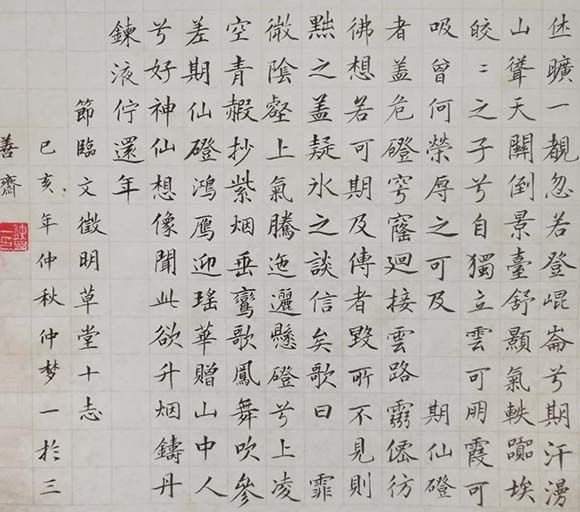 休曠一覩忽若登崐崙兮期汗漫
山聳天關倒景臺舒顥氣軼埃
皎〻之子兮自獨立雲可朋霞可
吸曾何榮辱之可及 期仙磴
者盖危磴穹窿迴接雲路靈僊彷
彿想若可期及傳者毀所不見則
黜之盖疑氷之談信矣歌曰 霏
微陰壑上氣騰迤邐懸磴兮上凌
空青赮抄紫烟垂鸞歌鳳舞吹參
差期仙磴鴻鴈迎瑤華贈山中人
兮好神仙想像聞此欲升烟鑄丹
鍊液佇還年
節臨文徵明草堂十志
己亥年仲秋仲梦一於三
善齋